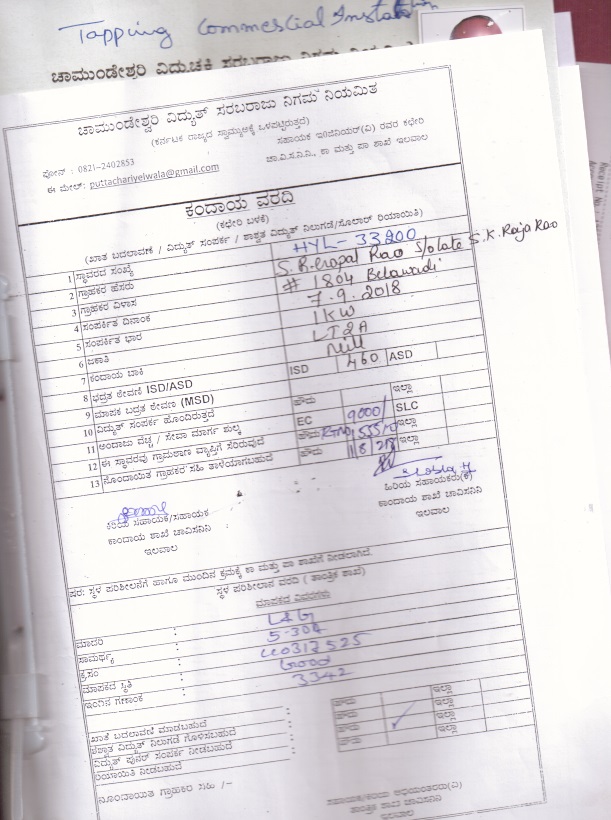 Tapping Commercial Installation
ಚಾಮುಂಡೇಶ್ವರಿ ವಿದ್ಯುಚ್ಛಕ್ತಿ ಸರಬರಾಜು ನಿಗಮ
ಚಾಮುಂಡೇಶ್ವರಿ ವಿದ್ಯುತ್ ಸರಬರಾಜು ನಿಗಮ ನಿಯಮಿತ
(ಕರ್ನಾಟಕ ರಾಜ್ಯದ ಸ್ವಾಮ್ಯಕ್ಕೆ ಒಳಪಟ್ಟಿರುತ್ತದೆ)
ಸಹಾಯಕ ಇಂಜಿನಿಯರ್(ವಿ) ರವರ ಕಛೇರಿ
ಪೋನ್ : 0821-2402853
ಚಾ.ವಿ.ಸ.ನಿ.ನಿ., ಕಾ ಮತ್ತು ಪಾ ಶಾಖೆ ಇಲವಾಲ
ಈ ಮೇಲ್: puttachariyelwala@gmail.com
ಕಂದಾಯ ವರದಿ
(ಕಛೇರಿ ಬಳಕೆ)
(ಖಾತೆ ಬದಲಾವಣೆ / ವಿದ್ಯುತ್ ಸಂಪರ್ಕ / ಶಾಶ್ವತ ವಿದ್ಯುತ್ ನಿಲುಗಡೆ/ಸೋಲಾರ್ ರಿಯಾಯಿತಿ)
1 ಸ್ಥಾವರದ ಸಂಖ್ಯೆ HYL-33200
2 ಗ್ರಾಹಕರ ಹೆಸರು S.R.Gopal Rao S/o late S.K.Raja Rao
3 ಗ್ರಾಹಕರ ವಿಳಾಸ # 1804 Belawadi
4 ಸಂಪರ್ಕಿತ ದಿನಾಂಕ 7.9.2018
5 ಸಂಪರ್ಕಿತ ಭಾರ 1KW
6 ಜಕಾತಿ LT2A
7 ಕಂದಾಯ ಬಾಕಿ Nill
8 ಭದ್ರತ ಠೇವಣಿ ISD/ASD ISD 460 ASD
9 ಮಾಪಕ ಬದ್ರತ ಠೇವಣಿ (MSD)
10 ವಿದ್ಯುತ್ ಸಂಪರ್ಕ ಹೊಂದಿರುತ್ತದೆ ಹೌದು ಇಲ್ಲಾ
11 ಅಂದಾಜು ವೆಚ್ಚ / ಸೇವಾ ಮಾರ್ಗ ಶುಲ್ಕ EC 9000/ SLC
12 ಈ ಸ್ಥಾವರವು ಗ್ರಾಮಠಾಣ ವ್ಯಾಪ್ತಿಗೆ ಸೇರಿರುವುದೆ ಹೌದು ಇಲ್ಲಾ
13 ನೊಂದಾಯಿತ ಗ್ರಾಹಕರ ಸಹಿ ತಾಳೆಯಾಗಬಹುದೆ ಹೌದು ಇಲ್ಲಾ
ಕಿರಿಯ ಸಹಾಯಕ/ಸಹಾಯಕ
ಕಂದಾಯ ಶಾಖೆ ಚಾವಿಸನಿನಿ
ಇಲವಾಲ
ಹಿರಿಯ ಸಹಾಯಕರು(ಕ)
ಕಾಂದಾಯ ಶಾಖೆ ಚಾವಿಸನಿನಿ
ಇಲವಾಲ
ಷರ: ಸ್ಥಳ ಪರಿಶೀಲನೆಗೆ ಹಾಗೂ ಮುಂದಿನ ಕ್ರಮಕ್ಕೆ ಕಾ ಮತ್ತು ಪಾ ಶಾಖೆಗೆ ನೀಡಲಾಗಿದೆ.
ಸ್ಥಳ ಪರಿಶೀಲಾನ ವರದಿ ( ತಾಂತ್ರಿಕ ಶಾಖೆ)
ಮಾಪಕದ ವಿವರಗಳು
ಮಾದರಿ : L&G
ಸಾಮರ್ಥ್ಯ : 5-30A
ಕ್ರ.ಸಂ :
ಮಾಪಕದ ಸ್ಥಿತಿ : Good
ಇಂದಿನ ಗಣಾಂಕ : 3342
ಖಾತೆ ಬದಲಾವಣೆ ಮಾಡಬಹುದೆ : ಹೌದು ಇಲ್ಲಾ
ಶಾಶ್ವತ ವಿದ್ಯುತ್ ನಿಲುಗಡೆ ಗೊಳಿಸಬಹುದೆ : ಹೌದು ಇಲ್ಲಾ
ವಿದ್ಯುತ್ ಪುನರ್ ಸಂಪರ್ಕ ನೀಡಬಹುದೆ : ಹೌದು ಇಲ್ಲಾ
ರಿಯಾಯಿತಿ ನೀಡಬಹುದೆ : ಹೌದು ಇಲ್ಲಾ
ನೊಂದಾಯಿತ ಗ್ರಾಹಕರ ಸಹಿ /-
ಸಹಾಯಕ/ಕಿರಿಯ ಅಭಿಯಂತರರು(ವಿ)
ತಾಂತ್ರಿಕ ಶಾಖೆ ಚಾವಿಸನಿನಿ
ಇಲವಾಲ